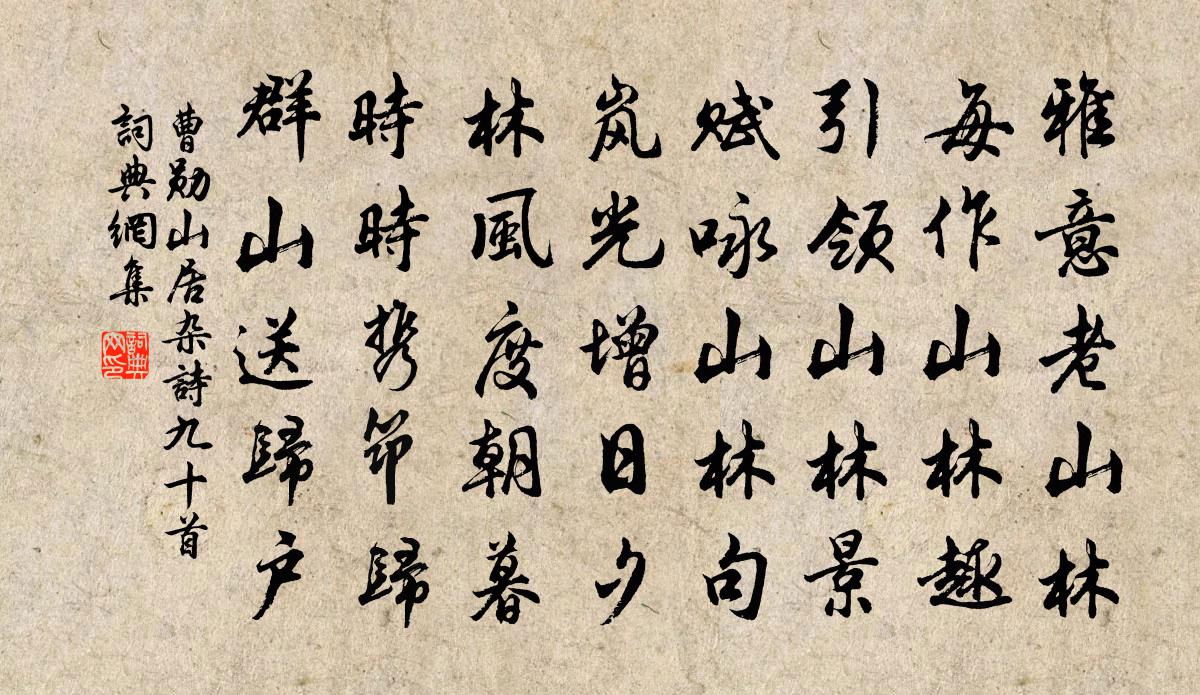 雅意老山林
每作山林趣
引領山林景
賦咏山林句
岚光增日夕
林風度朝暮
時時携笻歸
群山送歸户
曹勋山居杂詩九十首
詞典網集
詞典網印